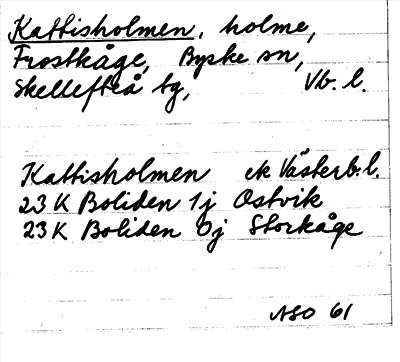 Kattisholmen, holme,
Frostkåge, Byske sn,
Skellefteå tg, Vb. l.
Kattisholmen ek Västerb.l.
23 K Boliden 1j Ostvik
23 K Boliden 0j Storkåge
ASO 61